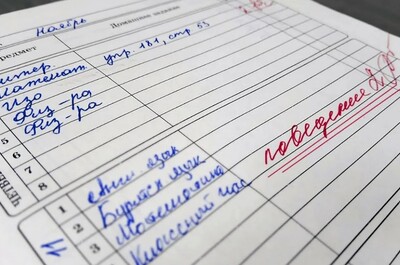 Ноябрь
Предмет Домашнее задание
Литер.
Математ. упр. 181, стр. 53
Изо
Физ-ра
Физ-ра
5
6
7
8
поведение
ЧЕТВЕ
1 Англ. язык
2 Бурятск. язык
3 Математика
Классный час
11